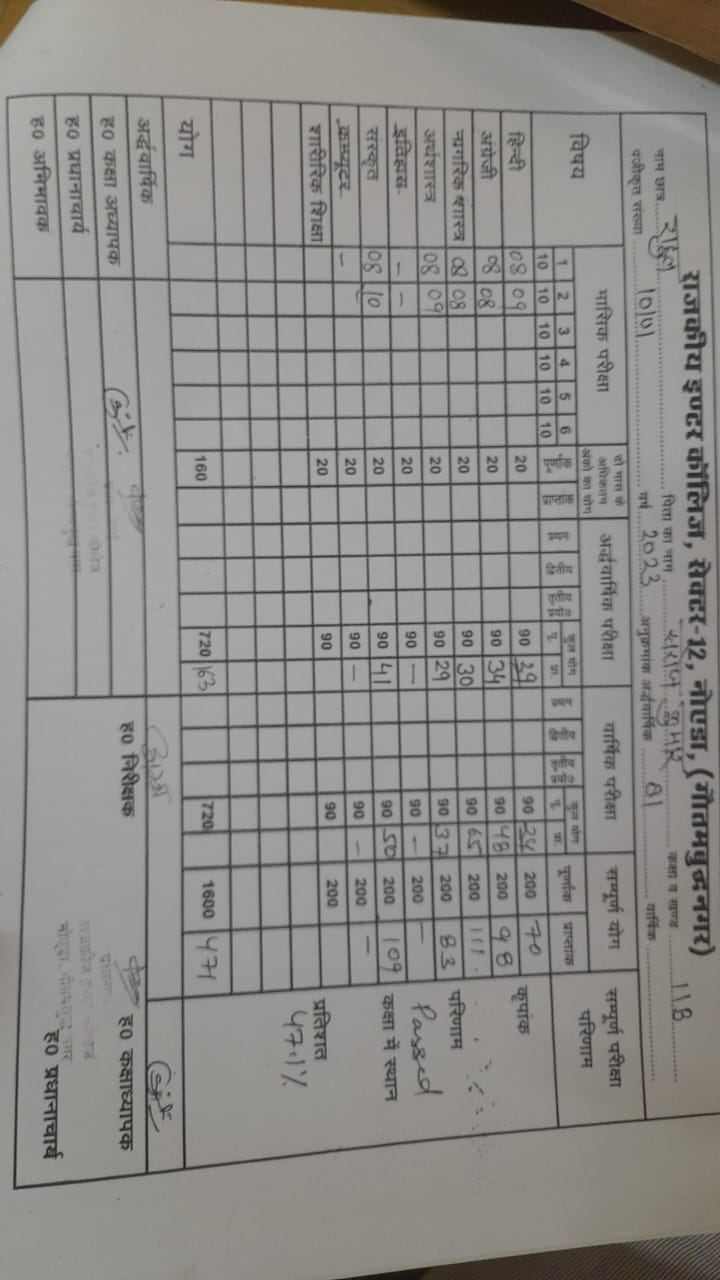 राजकीय इण्टर कॉलिज, सेक्टर-12, नोएडा, (गौतमबुद्धनगर)
नाम छात्र राहुल पिता का नाम कुमार कक्षा व खण्ड 11B
पंजीकृत संख्या 10101 वर्ष 2023 अनुक्रमांक अर्द्धवार्षिक 81 वार्षिक
विषय मासिक परीक्षा दो मास के अधिकतम अंको का योग अर्द्धवार्षिक परीक्षा वार्षिक परीक्षा सम्पूर्ण योग सम्पूर्ण परीक्षा परिणाम
1 2 3 4 5 6 प्रथम कुल योग प्रथम कुल योग पूर्णांक प्राप्तांक
10 10 10 10 10 10 पू. प्रा. पू. प्रा.
हिन्दी 08 09 20 90 29 90 24 200 70 कृपांक
अंग्रेजी 08 08 20 90 34 90 48 200 98
नागरिक शास्त्र 08 08 20 90 30 90 65 200 111 परिणाम
अर्थशास्त्र 08 09 20 90 29 90 37 200 83 Passed
इतिहास - - 20 90 - 90 - 200 -
संस्कृत 08 10 20 90 41 90 50 200 109 कक्षा में स्थान
कम्प्यूटर - 20 90 - 90 - 200 -
शारीरिक शिक्षा 20 90 90 200 प्रतिशत
47.1%
योग 160 720 163 720 1600 471
अर्द्धवार्षिक
ह0 कक्षा अध्यापक ह0 निरीक्षक ह0 कक्षाध्यापक
ह0 प्रधानाचार्य
ह0 अभिभावक ह0 प्रधानाचार्य